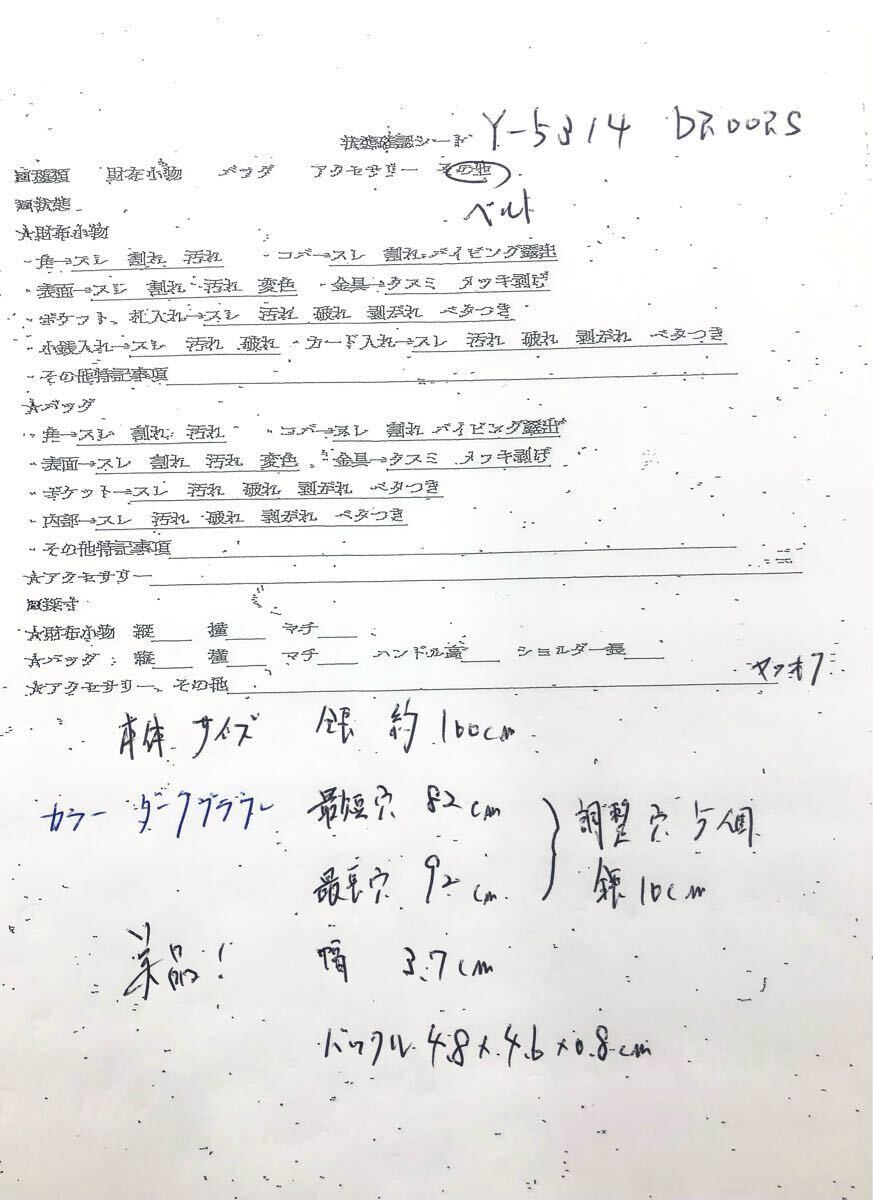 状態確認シート Y-5314 DROORS
■種類 財布小物 バッグ アクセサリー その他
ベルト
■状態
★財布小物
・角→スレ 割れ 汚れ ・コバ→スレ 割れ パイピング露出
・表面→スレ 割れ 汚れ 変色 ・金具→クスミ メッキ剥げ
・ポケット、札入れ→スレ 汚れ 破れ 剥がれ ベタつき
・小銭入れ→スレ 汚れ 破れ ・カード入れ→スレ 汚れ 破れ 剥がれ ベタつき
・その他特記事項
★バッグ
・角→スレ 割れ 汚れ ・コバ→スレ 割れ パイピング露出
・表面→スレ 割れ 汚れ 変色 ・金具→クスミ メッキ剥げ
・ポケット→スレ 汚れ 破れ 剥がれ ベタつき
・内部→スレ 汚れ 破れ 剥がれ ベタつき
・その他特記事項
★アクセサリー
■採寸
★財布小物 縦 横 マチ
★バッグ：縦 横 マチ ハンドル高 ショルダー長
★アクセサリー、その他 ヤフオフ
本体サイズ 全長 約 100cm
カラー ダークブラウン 最短穴 82cm 調整穴 5個
最長穴 92cm 全長 10cm
美品! 幅 3.7cm
バックル 4.8×4.6×0.8cm